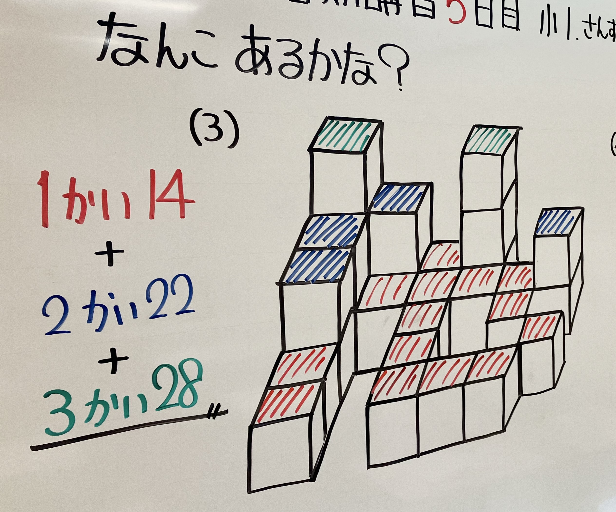 5日目 小1.さんす
なんこ あるかな?
(3)
1かい14
+
2かい22
+
3かい28